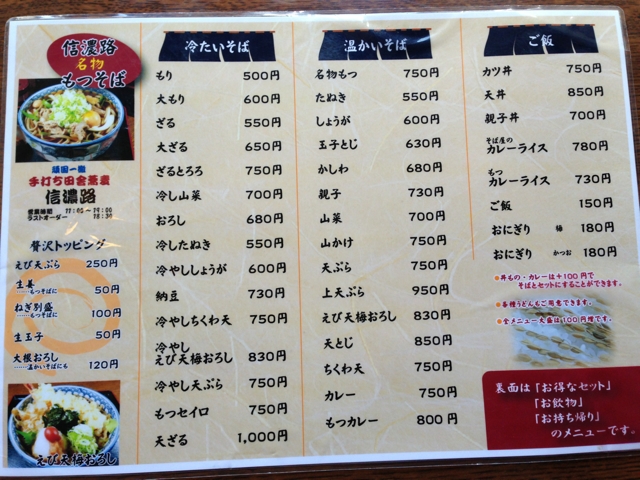 信濃路
名物
もつそば
頑固一徹
手打ち田舎蕎麦
信濃路
営業時間 11:05~19:00
ラストオーダー 18:30
贅沢トッピング
えび天ぷら 250円
生姜
……もつそばに 50円
ねぎ別盛
……もつそばに 100円
生玉子 50円
大根おろし
……温かいそばにも 120円
えび天梅おろし
冷たいそば
もり 500円
大もり 600円
ざる 550円
大ざる 650円
ざるとろろ 750円
冷し山菜 700円
おろし 680円
冷したぬき 550円
冷やししょうが 600円
納豆 730円
冷やしちくわ天 750円
冷やし
えび天梅おろし 830円
冷やし天ぷら 750円
もつセイロ 750円
天ざる 1,000円
温かいそば
名物もつ 750円
たぬき 550円
しょうが 600円
玉子とじ 630円
かしわ 680円
親子 730円
山菜 700円
山かけ 750円
天ぷら 750円
上天ぷら 950円
えび天梅おろし 830円
天とじ 850円
ちくわ天 750円
カレー 750円
もつカレー 800円
ご飯
カツ丼 750円
天丼 850円
親子丼 700円
そば屋の
カレーライス 780円
もつ
カレーライス 730円
ご飯 150円
おにぎり 梅 180円
おにぎり かつお 180円
●丼もの・カレーは+100円で
そばとセットにすることができます。
●各種うどんもご用意できます。
●全メニュー大盛は100円増です。
裏面は「お得なセット」
「お飲物」
「お持ち帰り」
のメニューです。